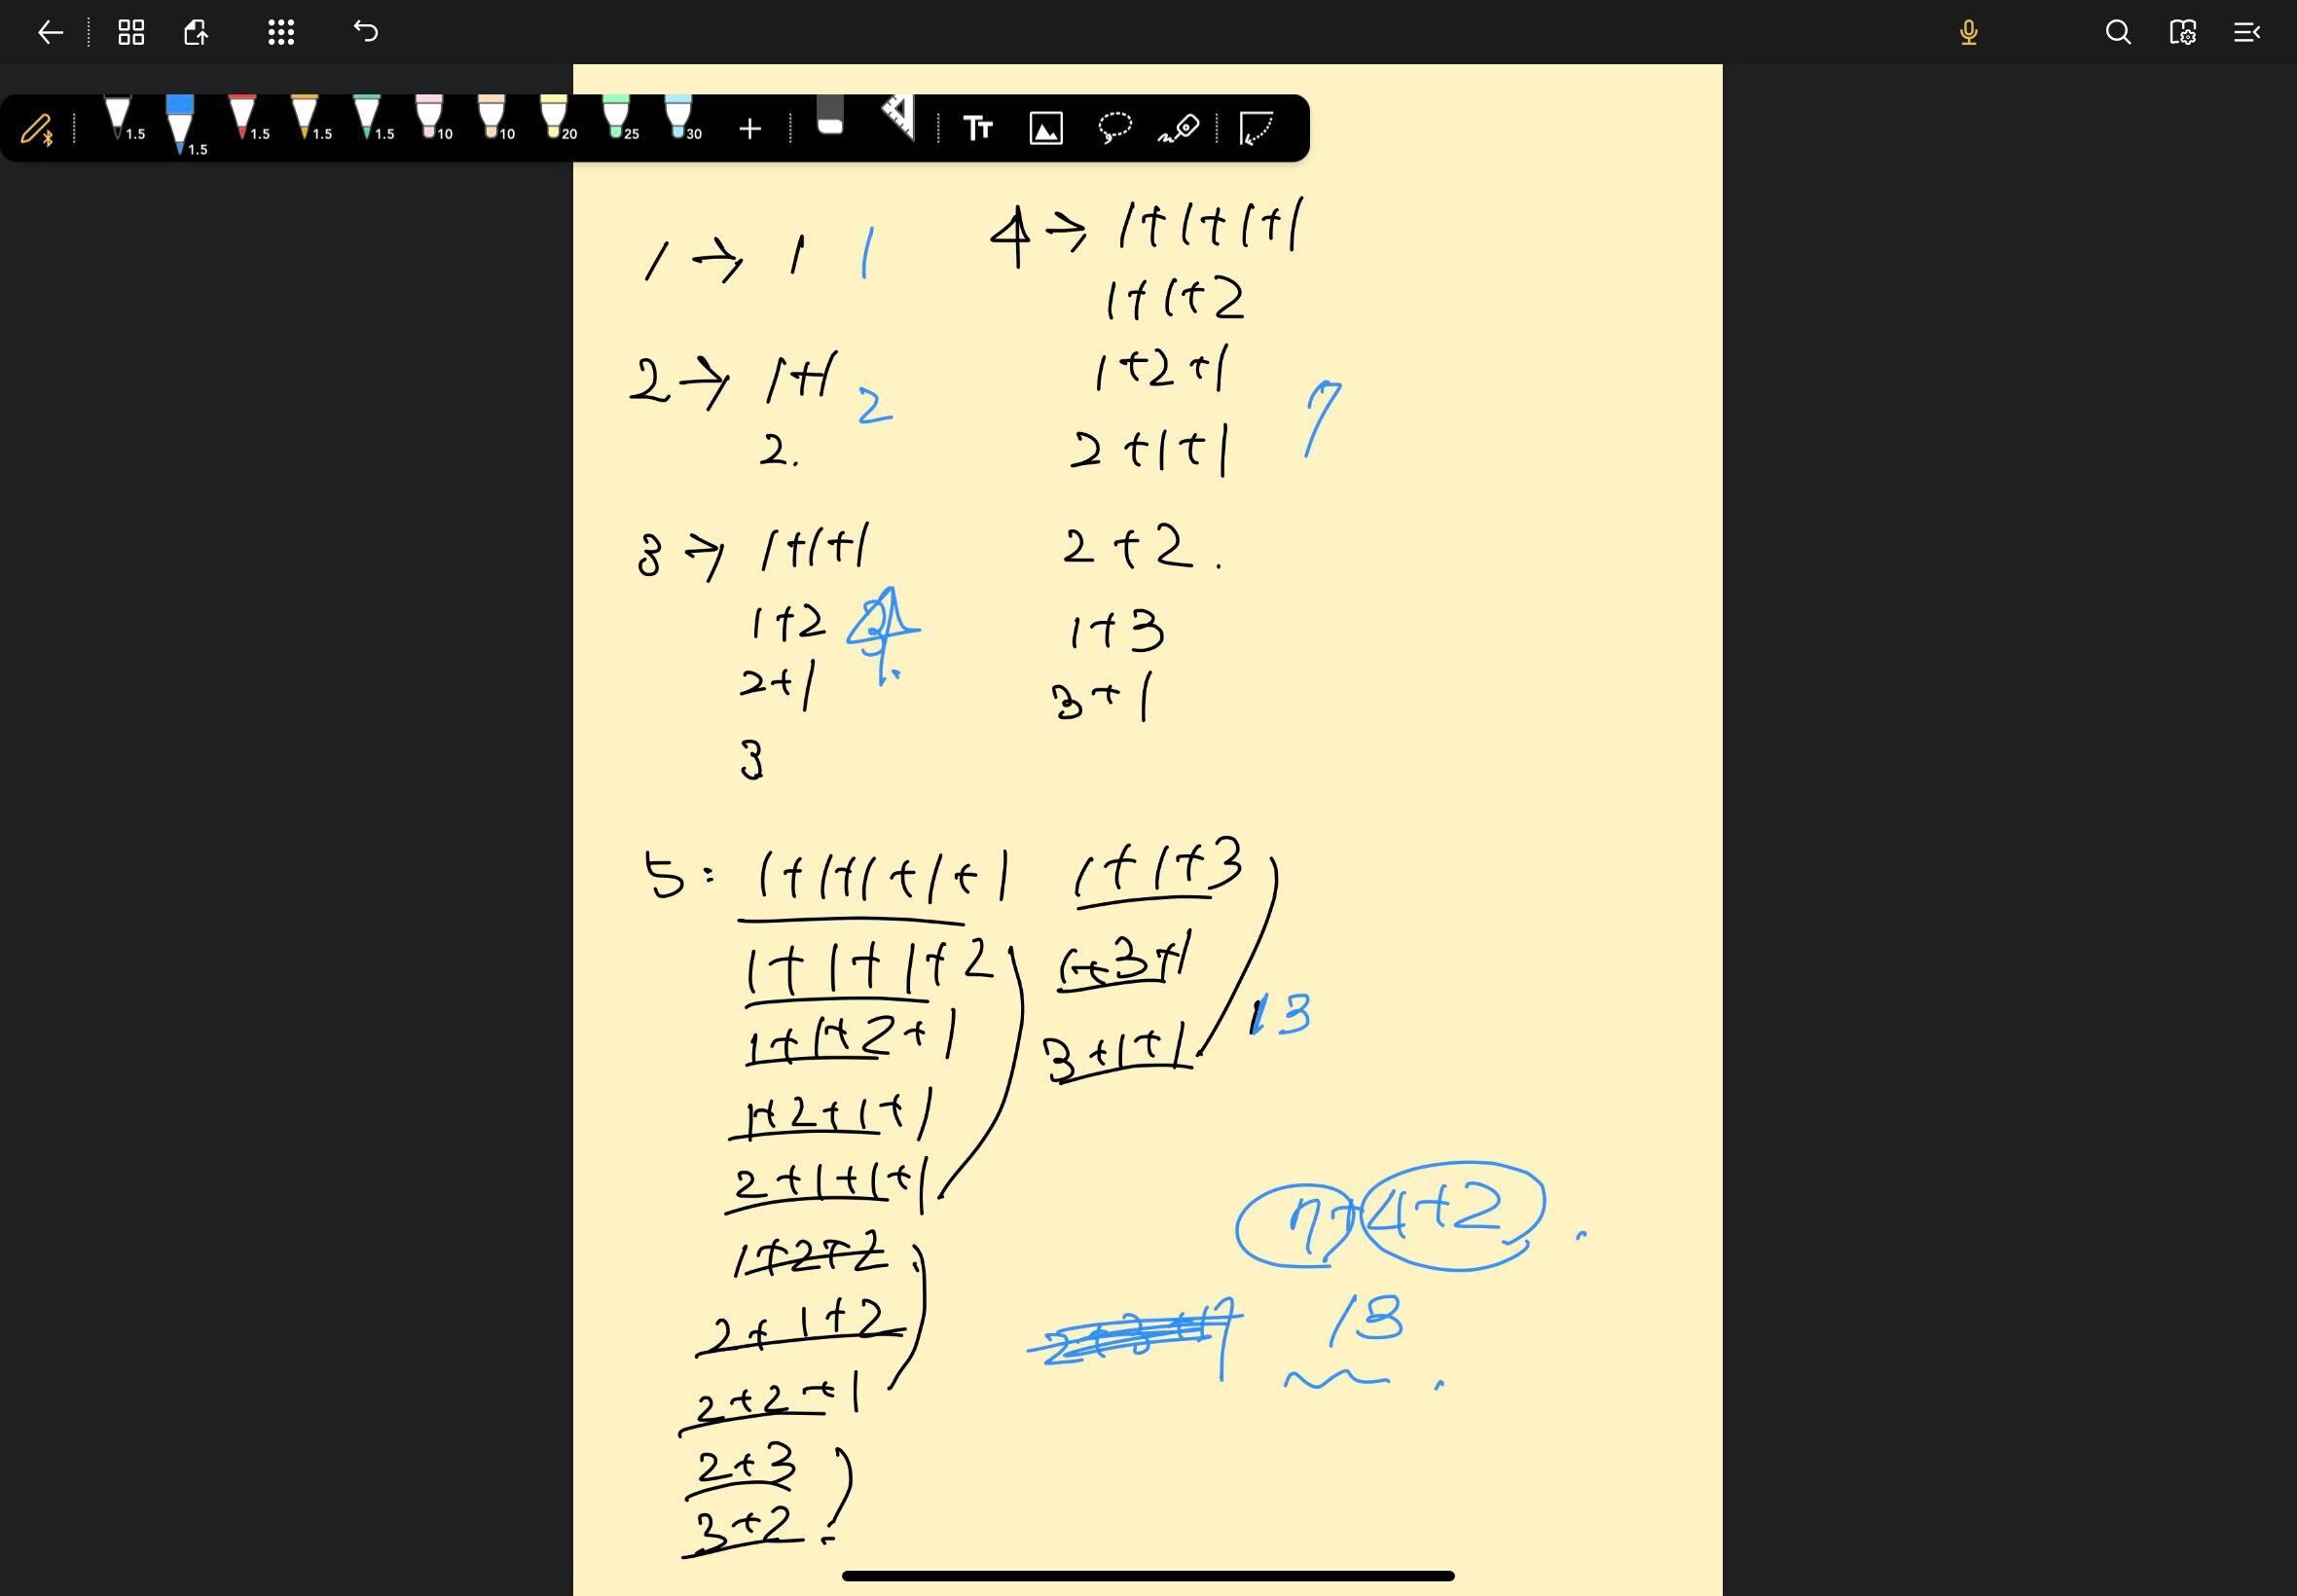 1.5 1.5 1.5 1.5 1.5 10 10 20 25 30 + Tt
1 → 1 1
2 → 1+1 2
2.
3 → 1+1+1
1+2 4.
2+1
3
4 → 1+1+1+1
1+1+2
1+2+1 7
2+1+1
2+2.
1+3
3+1
5: 1+1+1+1+1
1+1+1+2
1+1+2+1
1+2+1+1
2+1+1+1
1+2+2
2+1+2
2+2+1
2+3
3+2
1+1+3
1+3+1 13
3+1+1
7+4+2
13